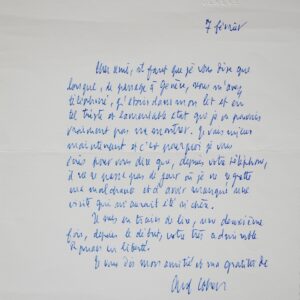 7 février
Cher ami, il faut que je vous dise que
lorsque, de passage à Genève, vous m'avez
téléphoné, j'étais dans mon lit et en
tel triste et lamentable état que je ne pouvais
vraiment pas me montrer. Je vais mieux
maintenant et c'est pourquoi je vous
écris pour vous dire que, depuis votre téléphone,
il ne se passe pas de jour où je ne regrette
ma malchance et d'avoir manqué une
visite qui m'aurait été si chère.
Je suis en train de lire, une deuxième
fois, depuis le début, votre très admirable
en liberté.
Je vous dis mon amitié et ma gratitude
Cohen